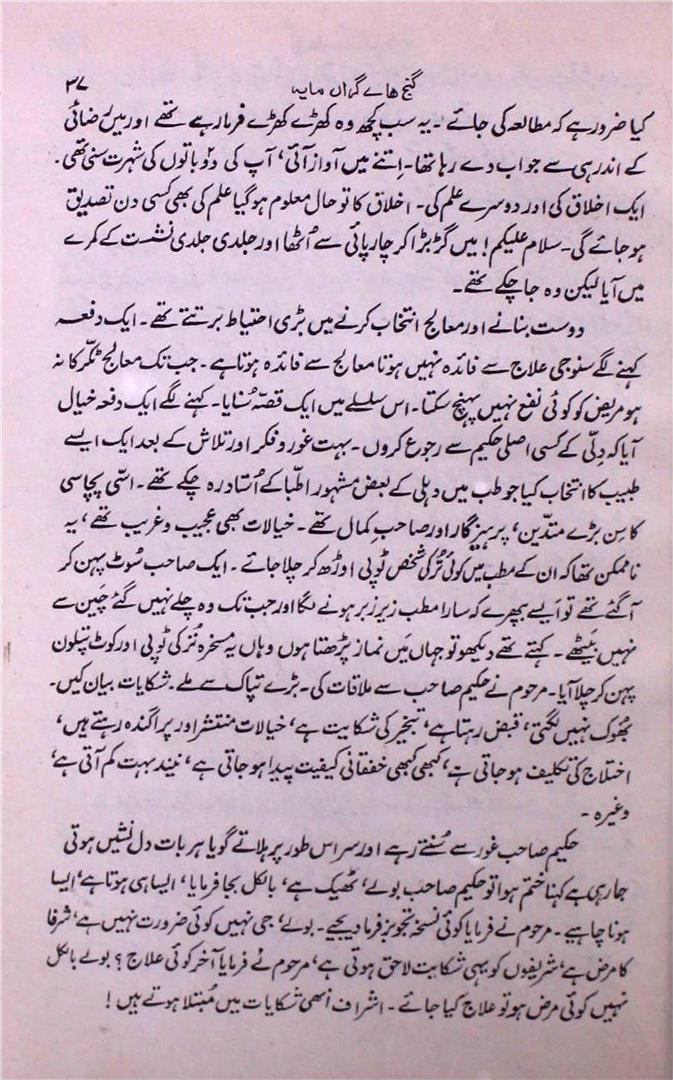 گنج ھاے گراں مایہ ۳۷
کیا ضرور ہے کہ مطالعہ کی جائے ۔ یہ سب کچھ وہ کھڑے کھڑے فرما رہے تھے اور میں رضائی
کے اندر ہی سے جواب دے رہا تھا۔ اِتنے میں آواز آئی، آپ کی دو باتوں کی شہرت سنی تھی۔
ایک اخلاق کی اور دوسرے علم کی۔ اخلاق کا تو حال معلوم ہو گیا علم کی بھی کسی دن تصدیق
ہو جائے گی۔ سلام علیکم! میں گڑبڑا کر چارپائی سے اُٹھا اور جلدی جلدی نشست کے کمرے
میں آیا لیکن وہ جا چکے تھے۔
دوست بنانے اور معالج انتخاب کرنے میں بڑی احتیاط برتتے تھے۔ ایک دفعہ
کہنے لگے سنو جی علاج سے فائدہ نہیں ہوتا معالج سے فائدہ ہوتا ہے۔ جب تک معالج ٹکّر کا نہ
ہو مریض کو کوئی نفع نہیں پہنچ سکتا۔ اس سلسلے میں ایک قصّہ سُنایا۔ کہنے لگے ایک دفعہ خیال
آیا کہ دِلّی کے کسی اصلی حکیم سے رجوع کروں۔ بہت غور و فکر اور تلاش کے بعد ایک ایسے
طبیب کا انتخاب کیا جو طب میں دہلی کے بعض مشہور اطبّا کے اُستاد رہ چکے تھے۔ اسّی پچاسی
کا سِن بڑے متدّین، پرہیز گار اور صاحبِ کمال تھے۔ خیالات بھی عجیب و غریب تھے، یہ
ناممکن تھا کہ ان کے مطب میں کوئی تُرکی شخص ٹوپی اوڑھ کر چلا جائے۔ ایک صاحب سُوٹ پہن کر
آ گئے تھے تو اَیسے بپھرے کہ سارا مطب زیر زبر ہونے لگا اور جب تک وہ چلے نہیں گئے چَین سے
نہیں بَیٹھے۔ کہتے تھے دیکھو تو جہاں مَیں نماز پڑھتا ہوں وہاں یہ مسخرہ نُز کی ٹوپی اور کوٹ پتلون
پہن کر چلا آیا۔ مرحوم نے حکیم صاحب سے ملاقات کی۔ بڑے تپاک سے ملے۔ شکایات بیان کیں۔
بھُوک نہیں لگتی، قبض رہتا ہے، تبخیر کی شکایت ہے، خیالات منتشر اور پراگندہ رہتے ہیں،
اختلاج کی تکلیف ہو جاتی ہے، کبھی کبھی خفقانی کیفیت پیدا ہو جاتی ہے، نیند بہت کم آتی ہے،
وغیرہ۔
حکیم صاحب غور سے سُنتے رہے اور سر اس طور پر ہلاتے گویا ہر بات دل نشیں ہوتی
جا رہی ہے کہنا ختم ہوا تو حکیم صاحب بولے، ٹھیک ہے، بالکل بجا فرمایا، ایسا ہی ہوتا ہے، ایسا
ہونا چاہیے۔ مرحوم نے فرمایا کوئی نسخہ تجویز فرما دیجیے۔ بولے، جی نہیں کوئی ضرورت نہیں ہے، شرفا
کا مرض ہے، شریفوں کو یہی شکایت لاحق ہوتی ہے، مرحوم نے فرمایا آخر کوئی علاج؟ بولے بالکل
نہیں کوئی مرض ہو تو علاج کیا جائے۔ اشراف انھی شکایات میں مُبتلا ہوتے ہیں!